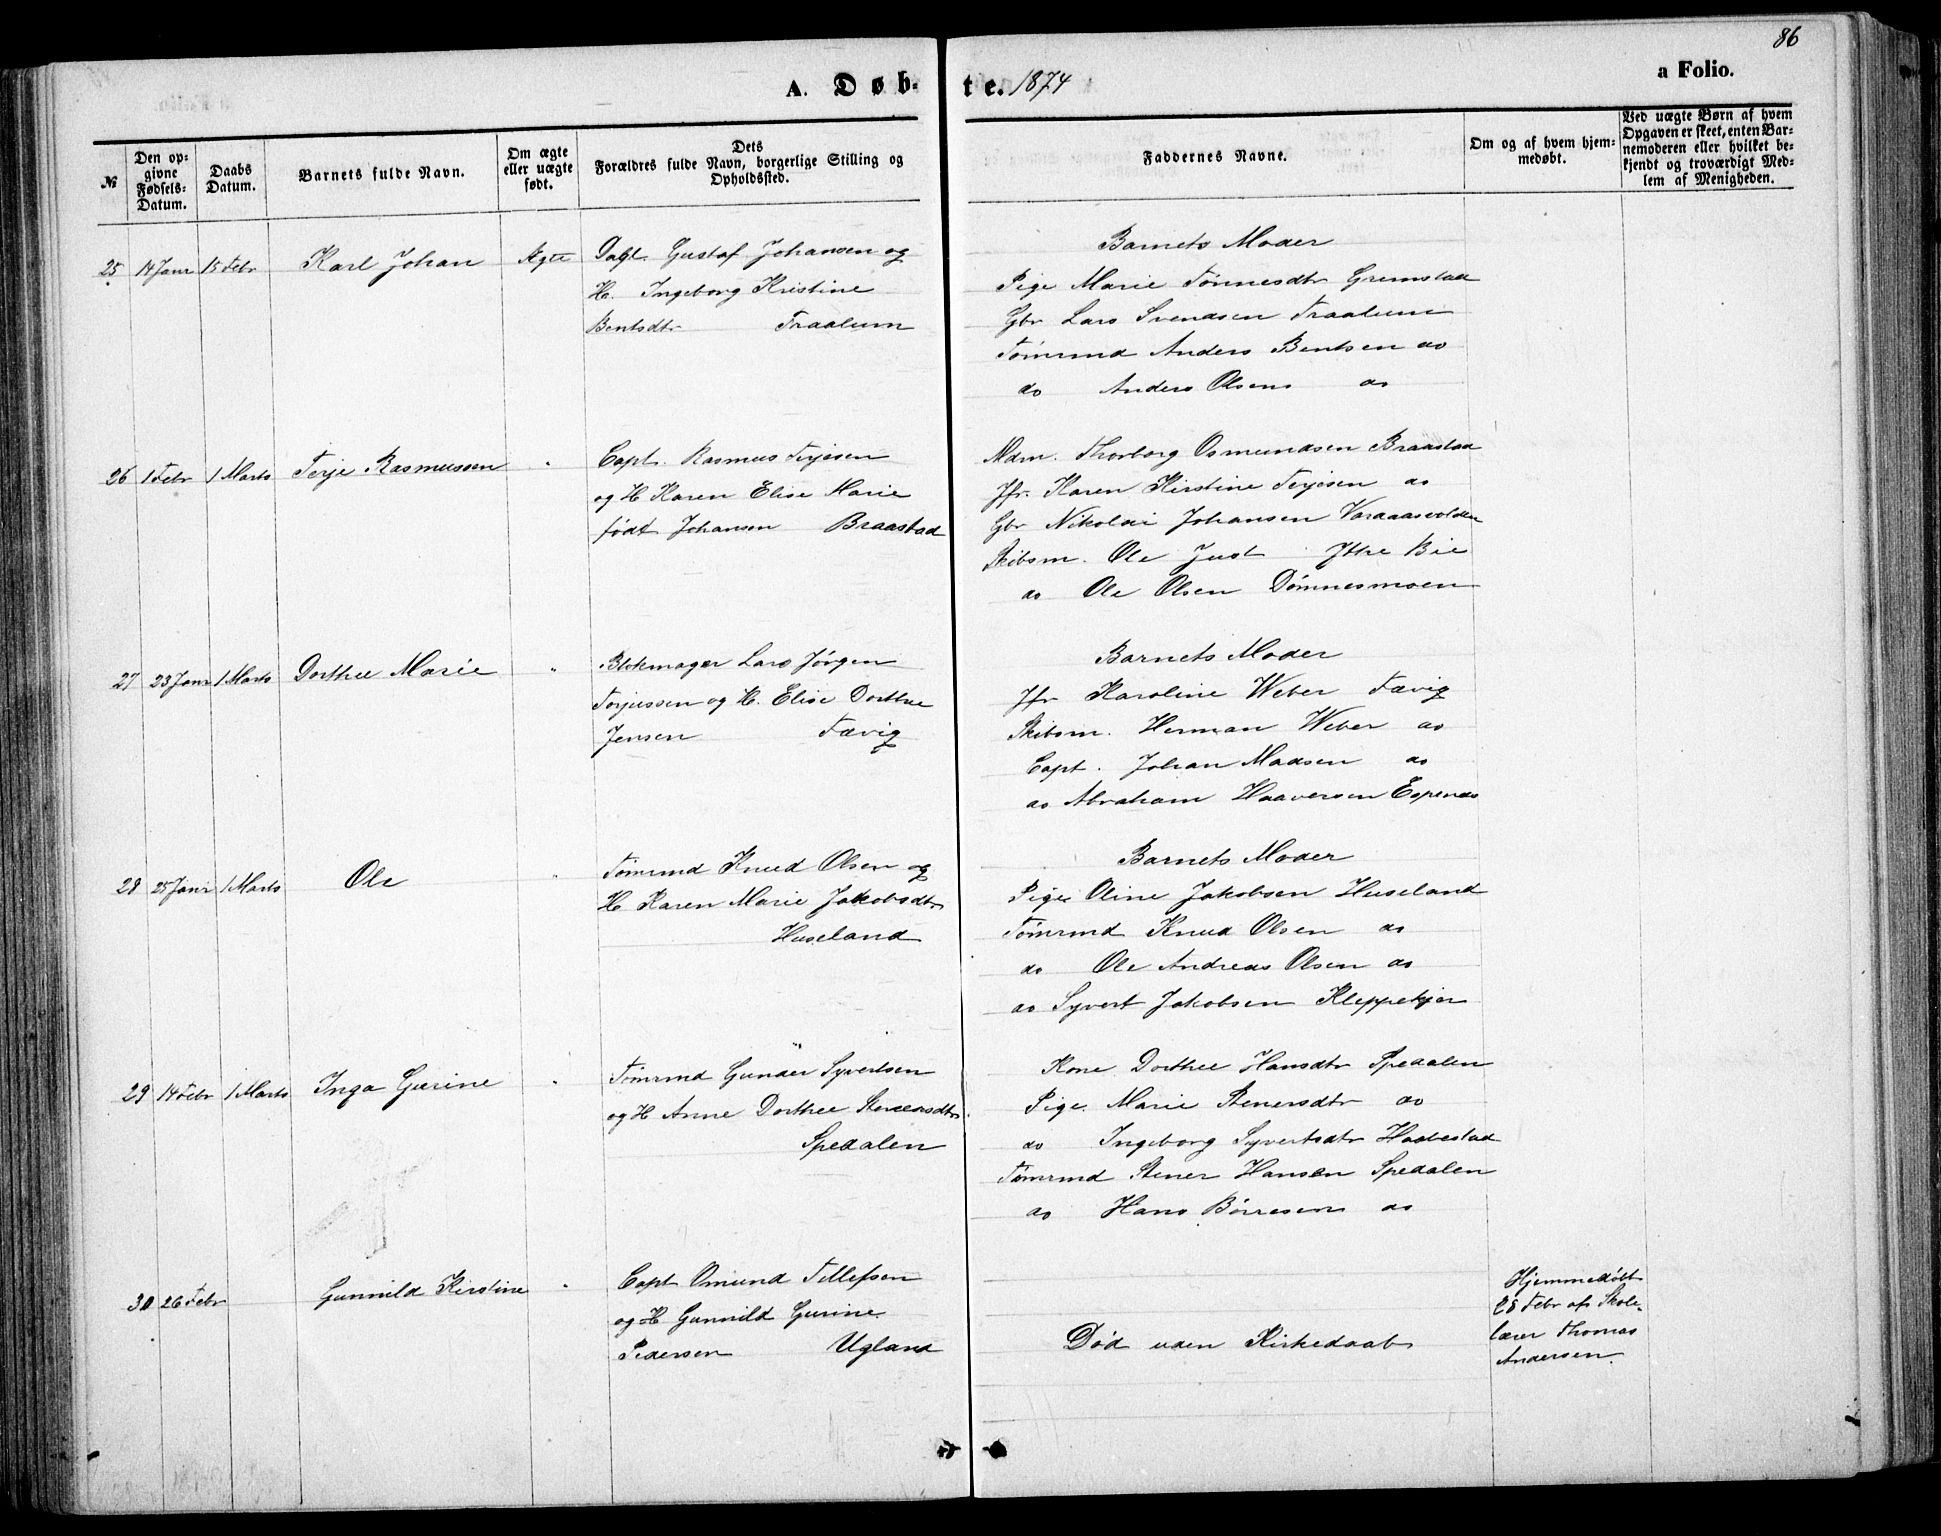 86
A. Døb- te. 1874
a Folio.
№
Den op-
givne
Fødsels-
Datum.
Daabs
Datum.
Barnets fulde Navn.
Om ægte
eller uægte
født.
Dets
Forældres fulde Navn, borgerlige Stilling og
Opholdssted.
Faddernes Navne.
Om og af hvem hjem-
medøbt.
Ved uægte Børn af hvem
Opgaven er skeet, enten Bar-
nemoderen eller hvilket be-
kjendt og troværdigt Med-
lem af Menigheden.
25 14 Janr 15 Febr Karl Johan Ægte
Gustaf Johansen og
H. Ingeborg Kristine
Bentsdtr Traalum
Barnets Moder
Pige Marie Tönnesdtr Gremstad
Gbr Lars Svendsen Traalum
Tömrmd Anders Bentsen do
do Anders Olsen do
26 1 Febr 1 Marts Terje Rasmussen "
Capt. Rasmus Terjesen
og H Karen Elise Marie
født Johansen Braastad
Mdm. Thorborg Osmundsen Braastad
Jfr. Karen Kirstine Terjesen do
Gbr Nikolai Johansen
Skibsm. Ole Just Ittre Bie
do Ole Olsen Dömnesmoen
27 23 Janr 1 Marts Dorthee Marie "
Blokmager Lars Jörgen
Terjessen og H. Elise Dorthee
Jensen Fævig
Barnets Moder
Jfr Karoline Weber Fævig
Skibsm. Herman Weber do
Capt. Johan Madsen do
do Abraham Haaversen Espenes
28 25 Janr 1 Marts Ole "
Tömrmd Knud Olsen og
H Karen Marie Jakobsdtr
Huseland
Barnets Moder
Pige Oline Jakobsen Huseland
Tömrmd Knud Olsen do
do Ole Andreas Olsen do
do Syvert Jakobsen Kleppekjær
29 14 Febr 1 Marts Inga Gurine "
Tömrmd Gunder Syvertsen
og H Anne Dorthee Stenersdtr
Spedalen
Kone Dorthee Hansdtr Spedalen
Pige Marie Stenersdtr do
do Ingeborg Syvertsdtr Habbestad
Tömrmd Stener Hansen Spedalen
do Hans Börresen do
30 26 Febr Gunnild Kirstine "
Capt Omund Tellefsen
og H Gunnild Gurine
Pedersen Ugland
Död uden Kirkedaab
Hjemmedöbt
28 Febr af Skole-
lærer Thomas
Andersen.